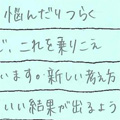 悩んだりつらく
、これを乗りこえ
います。新しい考え方
いい結果が出るよう